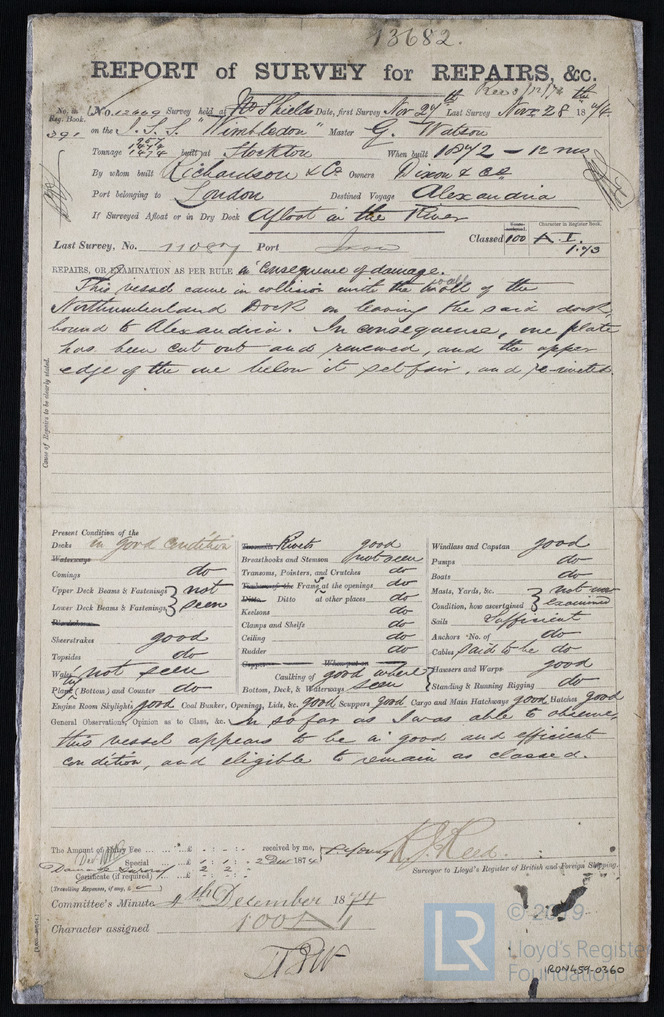 13682.
REPORT of SURVEY for REPAIRS, &c.
Rec 3/12/74
No. in Reg. Book. No. 12669 Survey held at No. Shields Date, first Survey Nov 27th Last Survey Nov 28th 1874
391 on the I. S. S. "Wimbledon" Master G. Watson
Tonnage 1474 built at Stockton When built 1872 - 12 mo
By whom built Richardson & Co Owners Dixon & Co
Port belonging to London Destined Voyage Alexandria
If Surveyed Afloat or in Dry Dock Afloat in the River
Character in Register Book.
Last Survey, No. 11087 Port Iron Classed 100 A. 1.
1.73
REPAIRS, OR EXAMINATION AS PER RULE in consequence of damage.
This vessel came in collision with the wall of the
Northumberland Dock on leaving the said dock,
bound to Alexandria. In consequence, one plate
has been cut out and renewed, and the upper
edge of the one below it set fair, and re-riveted.
Cause of Repairs to be clearly stated.
Present Condition of the
Decks in good condition
Waterways
Comings do
Upper Deck Beams & Fastenings } not
Lower Deck Beams & Fastenings } seen
Sheerstrakes good
Topsides do
Wales not seen
Plank (Bottom) and Counter do
Treenails Rivets good
Breasthooks and Stemson not seen
Transoms, Pointers, and Crutches do
Frames at the openings do
Ditto Ditto at other places do
Keelsons do
Clamps and Shelfs do
Ceiling do
Rudder do
Copper When put on
Caulking of good where
Bottom, Deck, & Waterways seen
Windlass and Capstan good
Pumps do
Boats do
Masts, Yards, &c. } not
Condition, how ascertained } examined
Sails Sufficient
Anchors No. of do
Cables said to be do
Hawsers and Warps good
Standing & Running Rigging do
Engine Room Skylights good Coal Bunker, Openings, Lids, &c. good Scuppers good Cargo and Main Hatchways good Hatches good
General Observations, Opinion as to Class, &c. In so far as I was able to observe,
this vessel appears to be in good and efficient
condition, and eligible to remain as classed.
The Amount of Entry Fee £ : : received by me,
Special £ 1 : 1 : 2 Dec 1874
Damage Survey 2 2
Certificate (if required)
(Travelling Expenses, if any, £ )
Surveyor to Lloyd's Register of British and Foreign Shipping.
Committee's Minute 4th December 1874
Character assigned 100 A 1
© 2019
LR
Lloyd's Register
Foundation
IRON459-0360